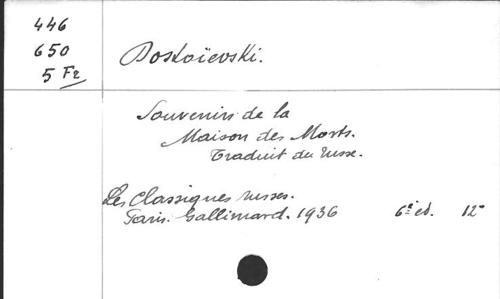 446
650
5 Fr
Dostoïevski.
Souvenirs de la
Maison des Morts.
Traduit du russe.
Les Classiques russes.
Paris. Gallimard. 1936 6e ed. 12°